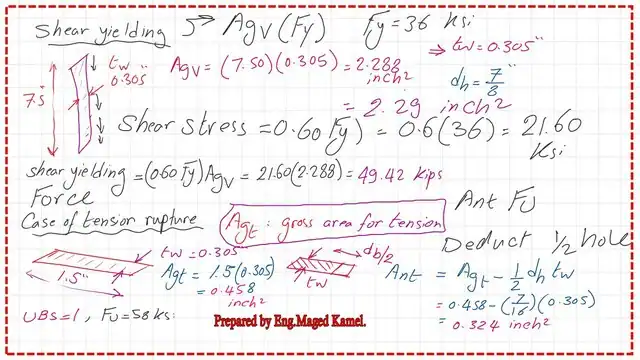 Shear yielding → Agv (Fy) Fy = 36 Ksi
⇒ tw = 0.305"
tw
0.305"
7.5"
Agv = (7.50)(0.305) = 2.288 inch²
dh = 7/8"
= 2.29 inch²
Shear stress = 0.60 Fy) = 0.6(36) = 21.60 Ksi
Shear yielding = (0.60 Fy) Agv = 21.60(2.288) = 49.42 Kips
Force
Ant Fu
Case of tension rupture
Agt : gross area for tension
Deduct 1/2 hole
tw = 0.305"
1.5"
Agt = 1.5(0.305)
= 0.458 inch²
db/2
tw
Ant = Agt - 1/2 dh tw
= 0.458 - (7/16)(0.305)
= 0.324 inch²
UBs = 1, Fu = 58 ksi
Prepared by Eng.Maged Kamel.